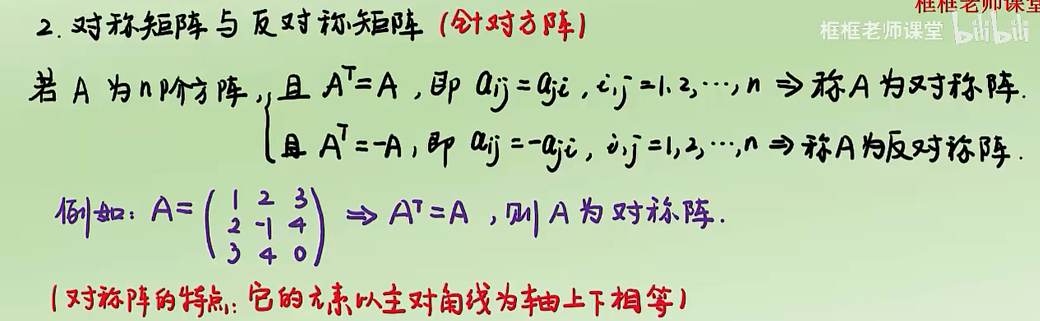 框框老师课堂
框框老师课堂 bilibili
2. 对称矩阵与反对称矩阵 (针对方阵)
若 A 为 n 阶方阵, 且 Aᵀ=A, 即 aij=aji, i,j=1,2,…,n ⇒ 称A为对称阵.
且 Aᵀ=-A, 即 aij=-aji, i,j=1,2,…,n ⇒ 称A为反对称阵.
例如: A= ( 1 2 3 ⇒ Aᵀ=A, 则 A 为对称阵.
2 -1 4
3 4 0 )
(对称阵的特点: 它的元素以主对角线为轴上下相等)